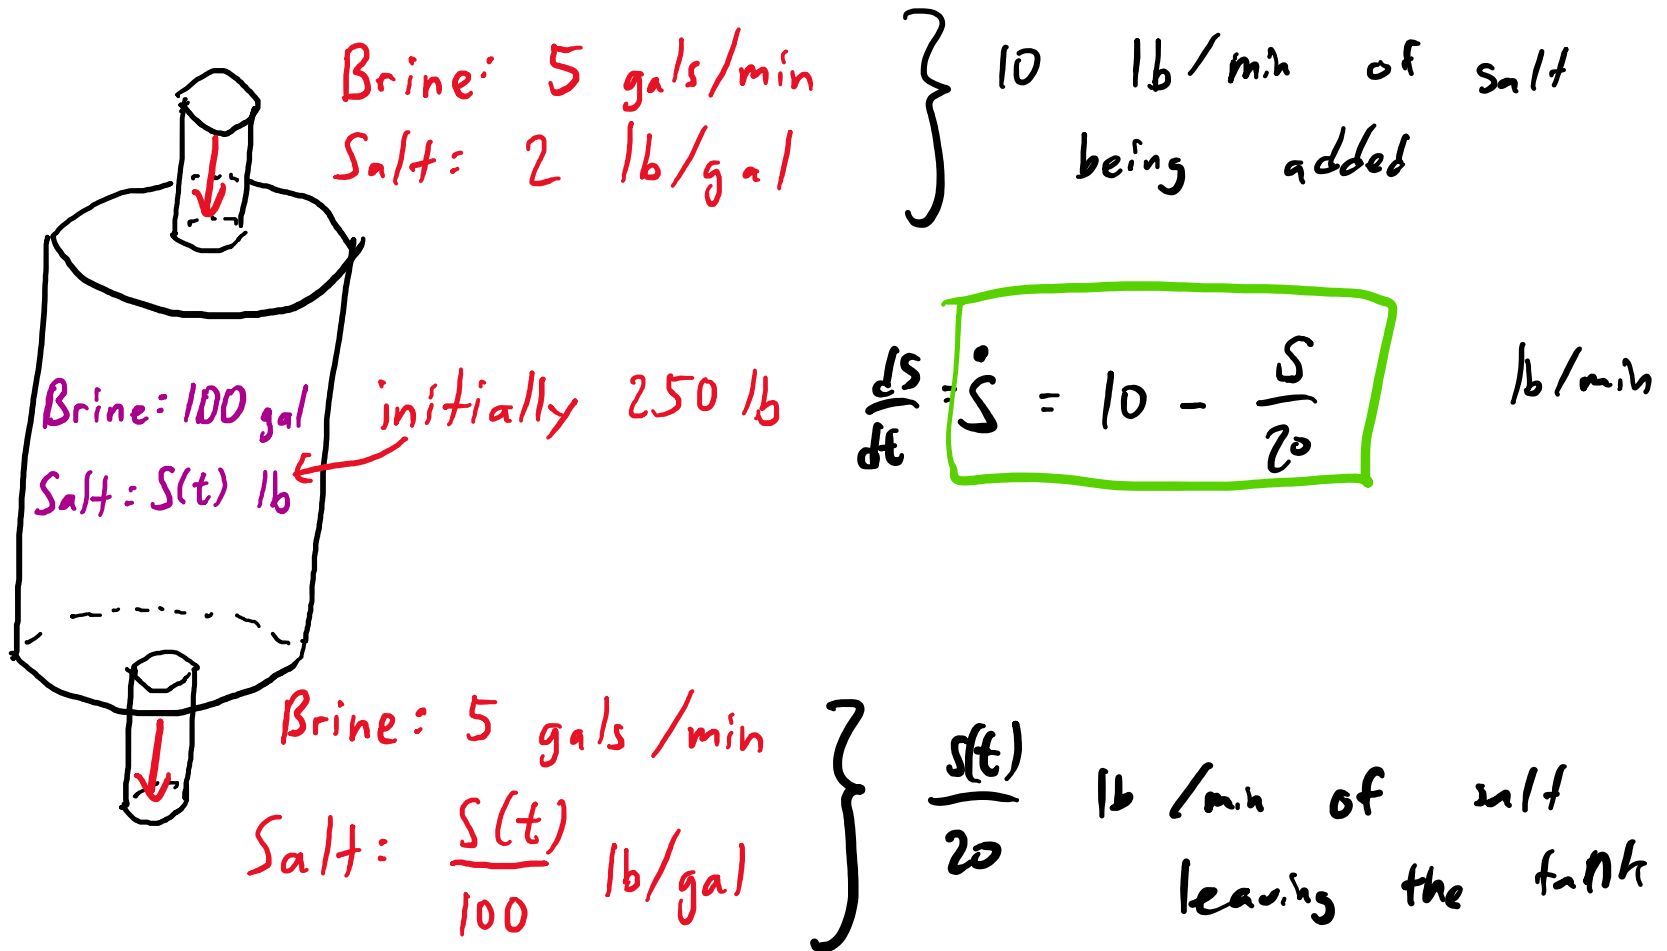 Brine: 5 gals/min
Salt: 2 lb/gal
10 lb/min of salt
being added
Brine: 100 gal
Salt: S(t) lb
initially 250 lb
dS/dt = Ṡ = 10 - S/20 lb/min
Brine: 5 gals/min
Salt: S(t)/100 lb/gal
S(t)/20 lb/min of salt
leaving the tank